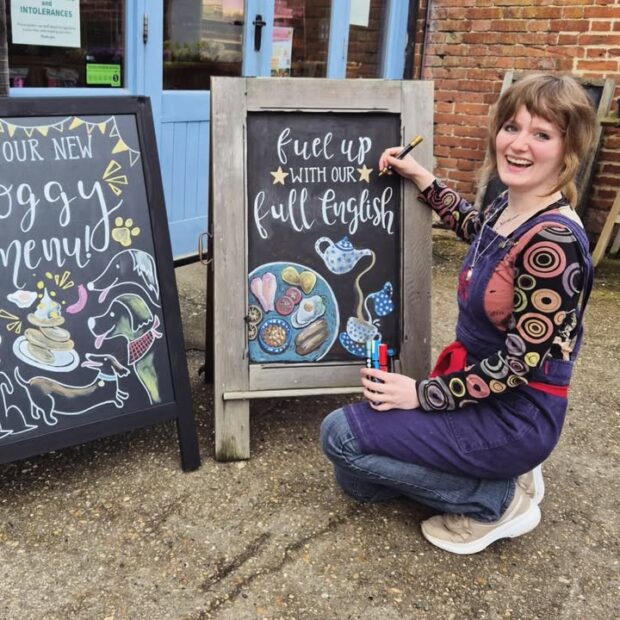 and
INTOLERANCES
OUR NEW
oggy
menu!
fuel up
WITH OUR
full English